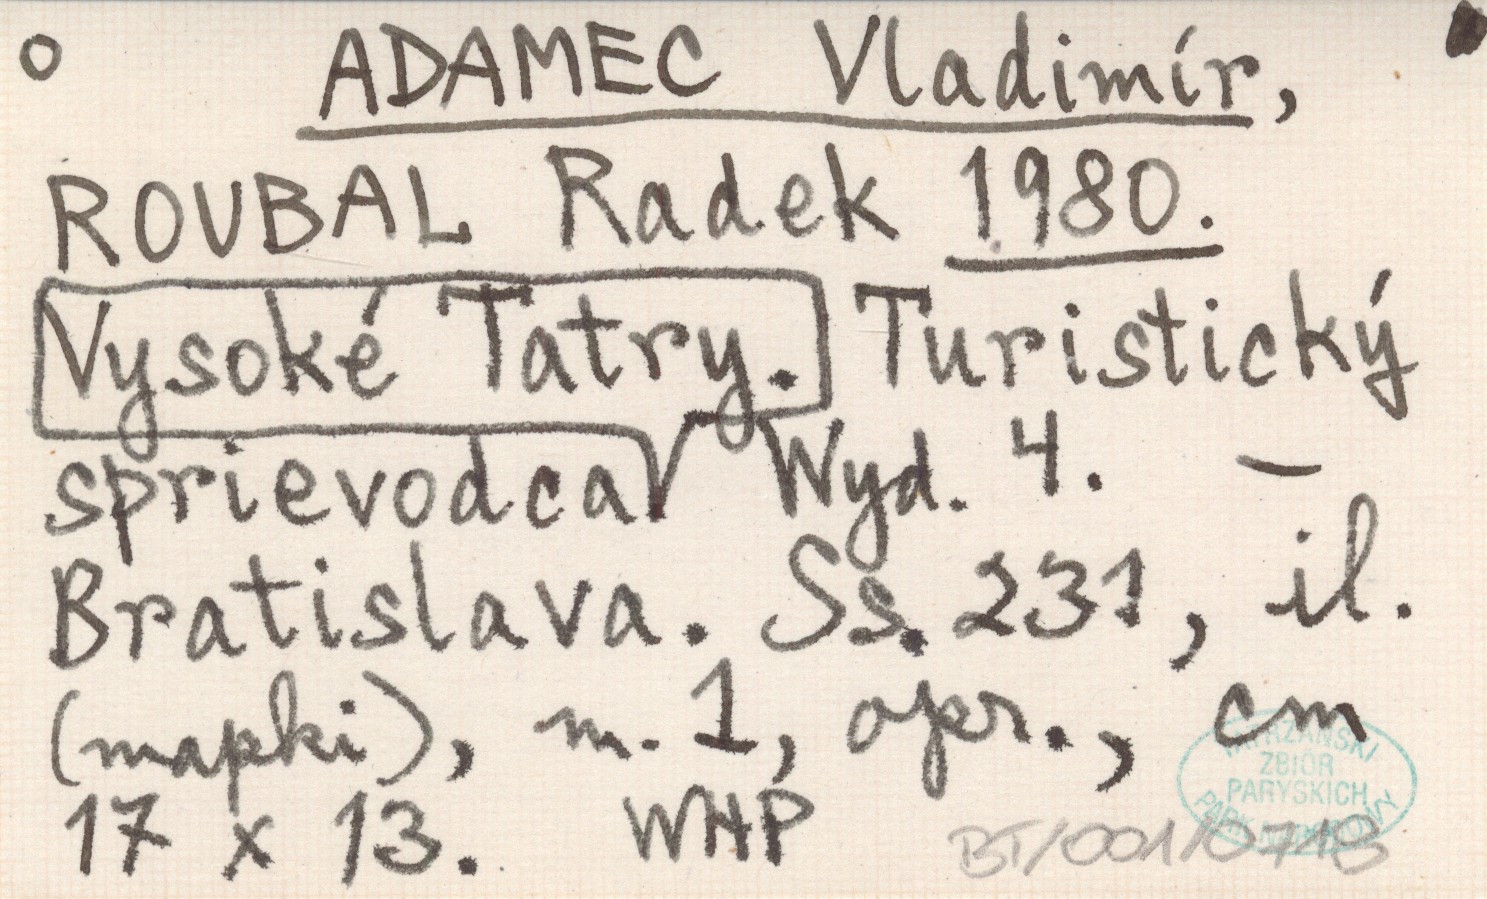 ADAMEC Vladimír,
ROUBAL Radek 1980.
Vysoké Tatry. Turistický
sprievodca Wyd. 4. –
Bratislava. Ss. 231, il.
(mapki), m. 1, opr., cm
17 x 13. WHP
TATRZAŃSKI
ZBIÓR
PARYSKICH
PARK NARODOWY
BT/001/0718